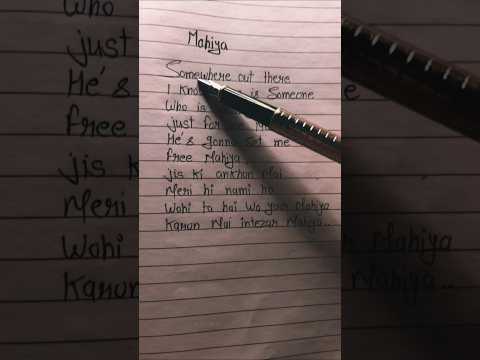 Mahiya
Somewhere out there
I is Someone
Who is
just for
He's gonna set me
free Mahiya
jis ki ankhon Mai
Meri hi nami ho
Wohi to hai Wo yar Mahiya
Karun Mai intezar Mahiya..